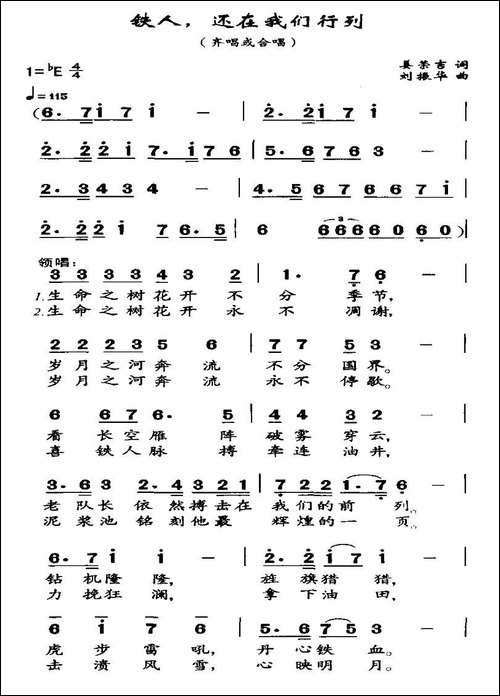 铁人，还在我们行列
（齐唱或合唱）
1=♭E 4/4
姜荣吉 词
刘振华 曲
♩=115
(6. 7 i 7 i － | 2. 2 i 7 i － |
2. 2 2 i 7. i 7 6 | 5. 6 7 6 3 － |
2. 3 4 3 4 － | 4. 5 6 7 6 6 7 i |
2. 2 2 i 7 6. 5 | 6 6 6 6 6 0 6 0) |
领唱：
3 3 3 3 4 3 2 | 1. 7 6 － |
1.生命之树花开不分季节，
2.生命之树花开永不凋谢，
2 2 2 3 5 6 | 7 7 5 3 － |
岁月之河奔流不分国界。
岁月之河奔流永不停歇。
6 6 7 6. 5 | 4 4 3 2 － |
看长空雁阵破雾穿云，
喜铁人脉搏牵连油井，
3. 6 3 2. 4 3 2 1 | 7 2 2 2 1. 7 6 － |
老队长依然搏击在我们的前列。
泥浆池铭刻他最辉煌的一页。
6. 7 i i － | 2. 2 7 i i － |
钻机隆隆，旌旗猎猎，
力挽狂澜，拿下油田，
6 i 7 6 － | 5. 6 7 5 3 － |
虎步雷吼，丹心铁血。
击溃风雪，心映明月。